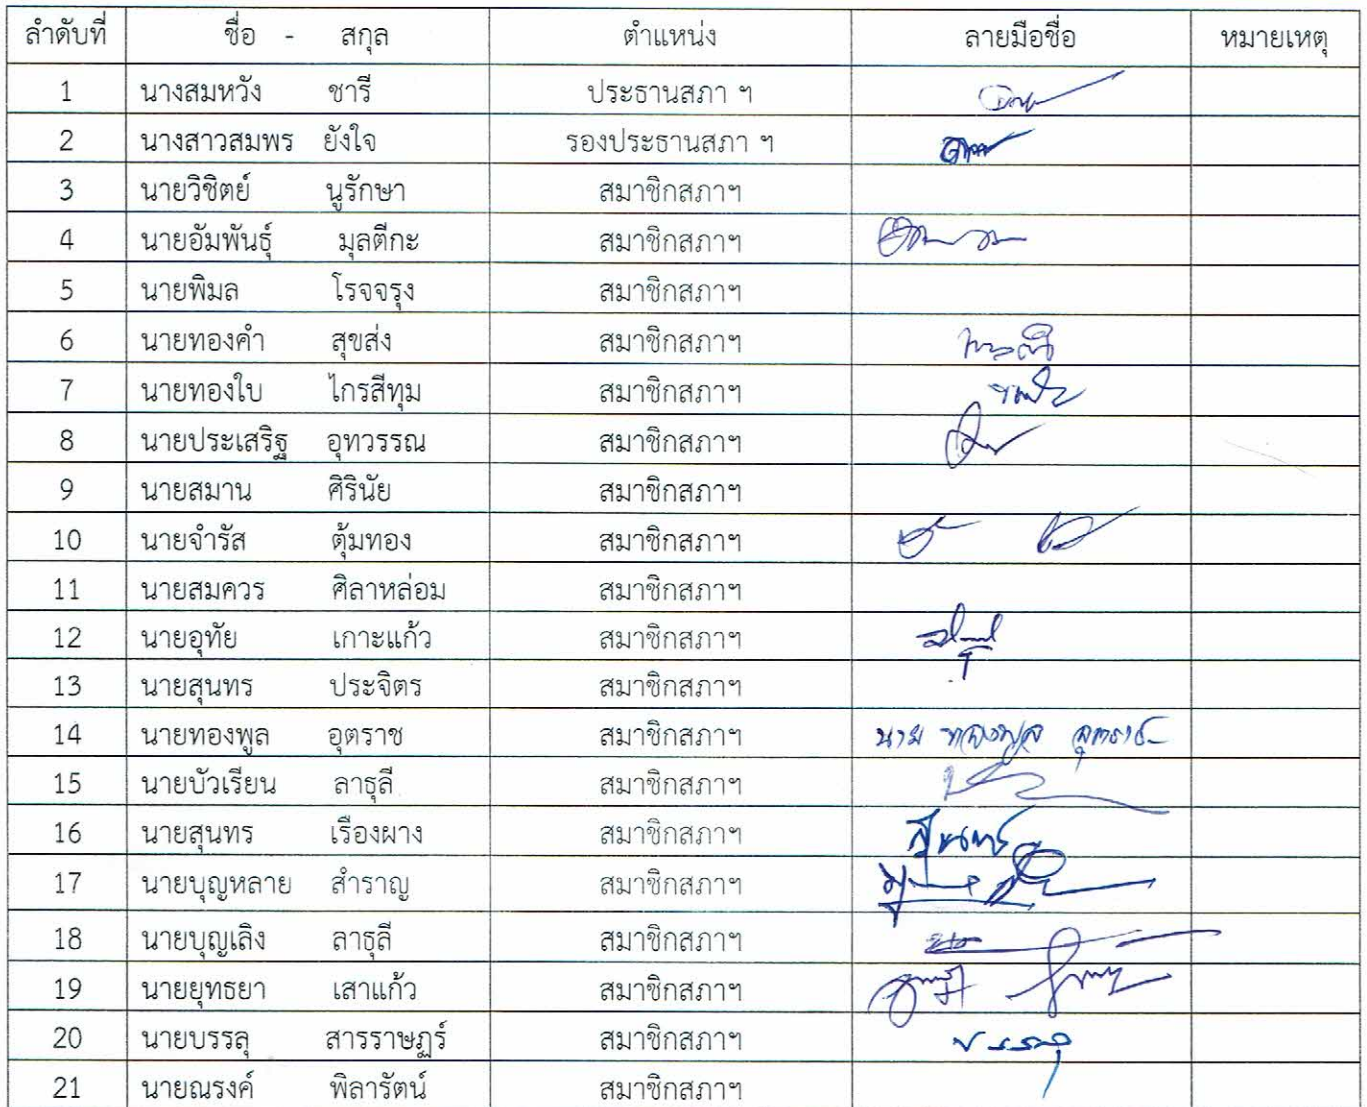 ลำดับที่ ชื่อ - สกุล ตำแหน่ง ลายมือชื่อ หมายเหตุ
1 นางสมหวัง ชารี ประธานสภา ฯ
2 นางสาวสมพร ยังใจ รองประธานสภา ฯ
3 นายวิชิตย์ นูรักษา สมาชิกสภาฯ
4 นายอัมพันธุ์ มุลตีกะ สมาชิกสภาฯ
5 นายพิมล โรจจรุง สมาชิกสภาฯ
6 นายทองคำ สุขส่ง สมาชิกสภาฯ
7 นายทองใบ ไกรสีทุม สมาชิกสภาฯ
8 นายประเสริฐ อุทวรรณ สมาชิกสภาฯ
9 นายสมาน ศิรินัย สมาชิกสภาฯ
10 นายจำรัส ตุ้มทอง สมาชิกสภาฯ
11 นายสมควร ศิลาหล่อม สมาชิกสภาฯ
12 นายอุทัย เกาะแก้ว สมาชิกสภาฯ
13 นายสุนทร ประจิตร สมาชิกสภาฯ
14 นายทองพูล อุตราช สมาชิกสภาฯ นาย ทองพูล อุตราช
15 นายบัวเรียน ลาธุลี สมาชิกสภาฯ
16 นายสุนทร เรืองผาง สมาชิกสภาฯ
17 นายบุญหลาย สำราญ สมาชิกสภาฯ
18 นายบุญเลิง ลาธุลี สมาชิกสภาฯ
19 นายยุทธยา เสาแก้ว สมาชิกสภาฯ
20 นายบรรลุ สารราษฏร์ สมาชิกสภาฯ บรรลุ
21 นายณรงค์ พิลารัตน์ สมาชิกสภาฯ